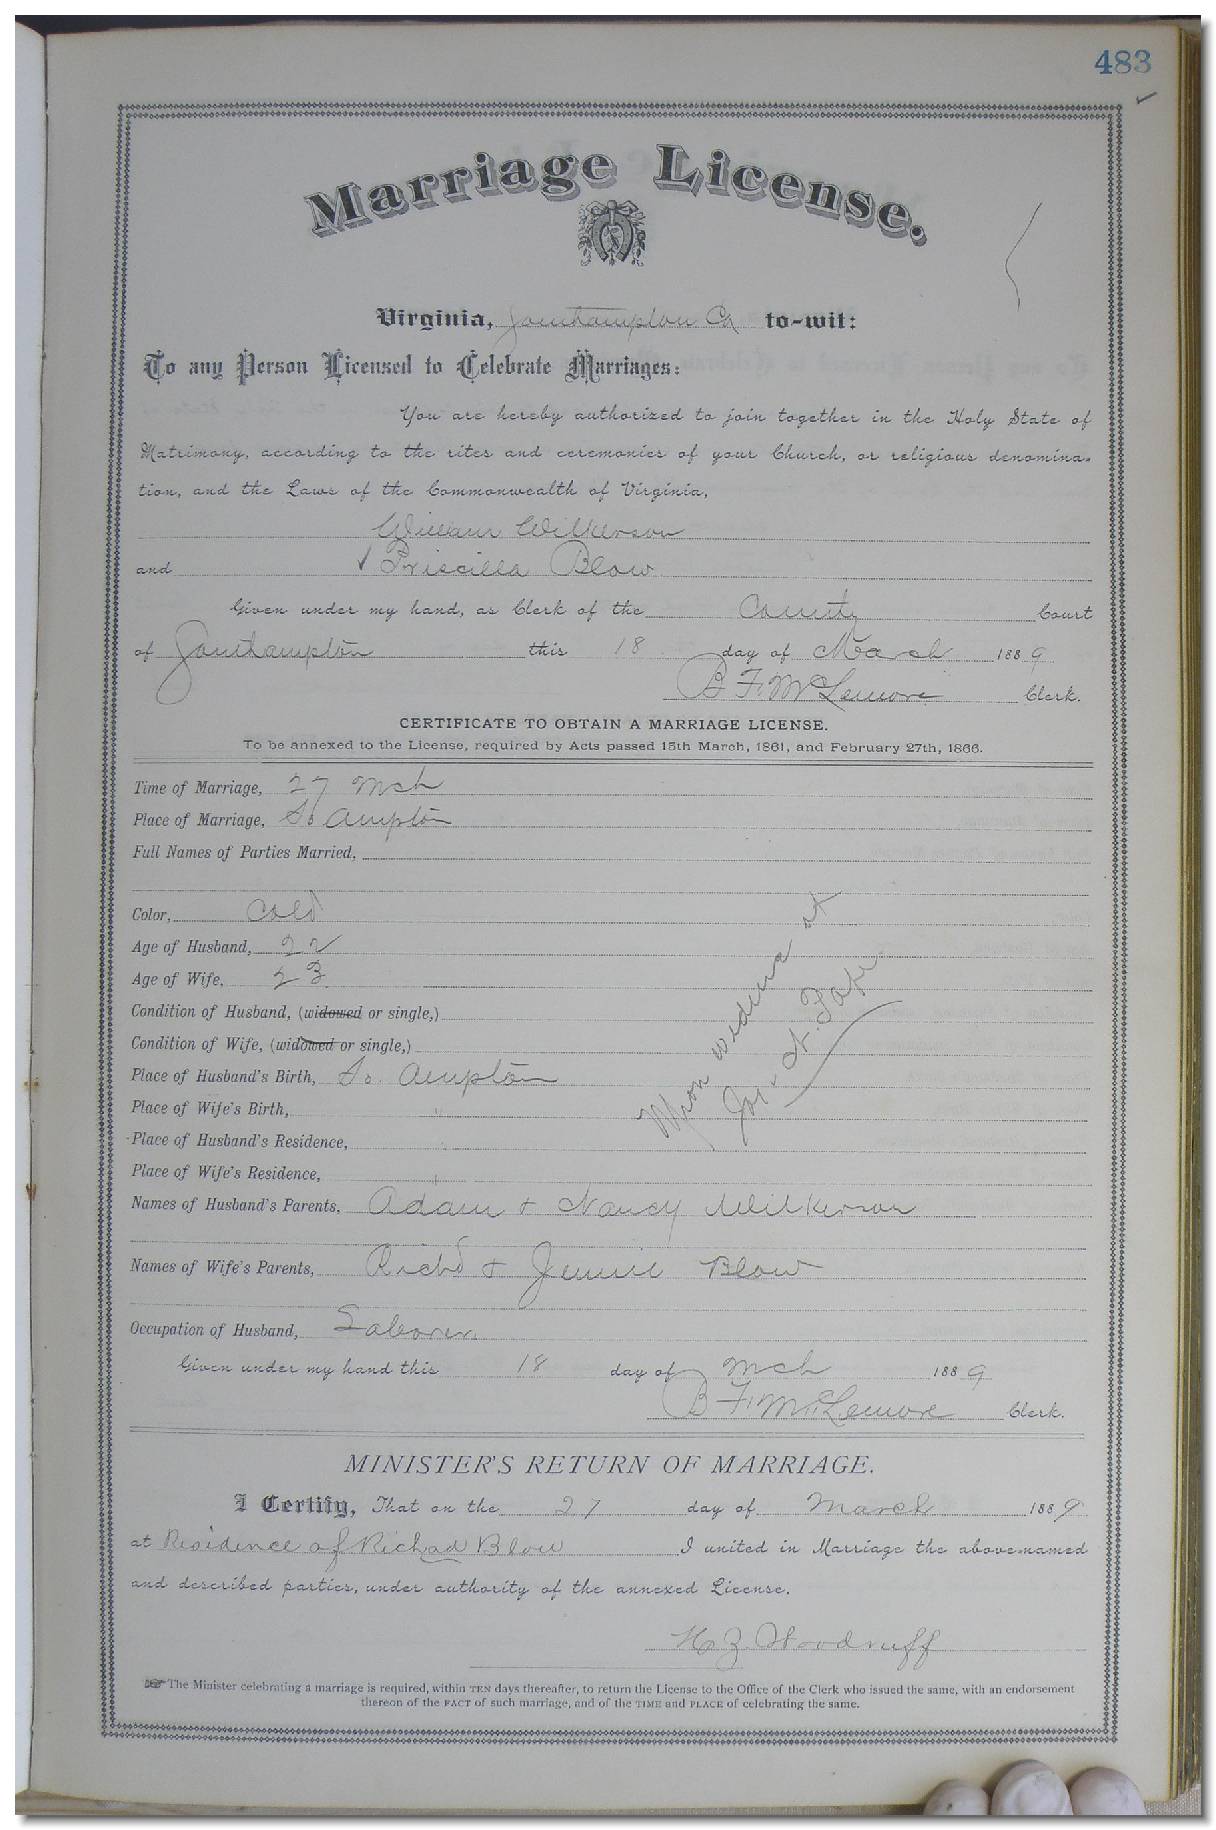 483
Marriage License.
Virginia, Southampton Co to-wit:
To any Person Licensed to Celebrate Marriages:
You are hereby authorized to join together in the Holy State of
Matrimony, according to the rites and ceremonies of your Church, or religious denomina-
tion, and the Laws of the Commonwealth of Virginia,
William Wilkerson
and Priscilla Blow
Given under my hand, as Clerk of the County Court
of Southampton this 18 day of March 1889
B F. McLemore Clerk.
CERTIFICATE TO OBTAIN A MARRIAGE LICENSE.
To be annexed to the License, required by Acts passed 15th March, 1861, and February 27th, 1866.
Time of Marriage, 27 Mch
Place of Marriage, So Ampton
Full Names of Parties Married,
Color, Cold
Age of Husband, 22
Age of Wife, 23
Condition of Husband, (widowed or single,)
Condition of Wife, (widowed or single,)
Place of Husband's Birth, So. Ampton
Place of Wife's Birth, "
Place of Husband's Residence,
Place of Wife's Residence,
Names of Husband's Parents, Adam + Nancy Wilkerson
Names of Wife's Parents, Richd + Jennie Blow
Occupation of Husband, Laborer.
Given under my hand this 18 day of Mch 1889
B F. McLemore Clerk.
MINISTER'S RETURN OF MARRIAGE.
I Certify, That on the 27 day of March 1889
at Residence of Richad Blow I united in Marriage the above-named
and described parties, under authority of the annexed License.
H Z Woodruff
The Minister celebrating a marriage is required, within TEN days thereafter, to return the License to the Office of the Clerk who issued the same, with an endorsement
thereon of the FACT of such marriage, and of the TIME and PLACE of celebrating the same.